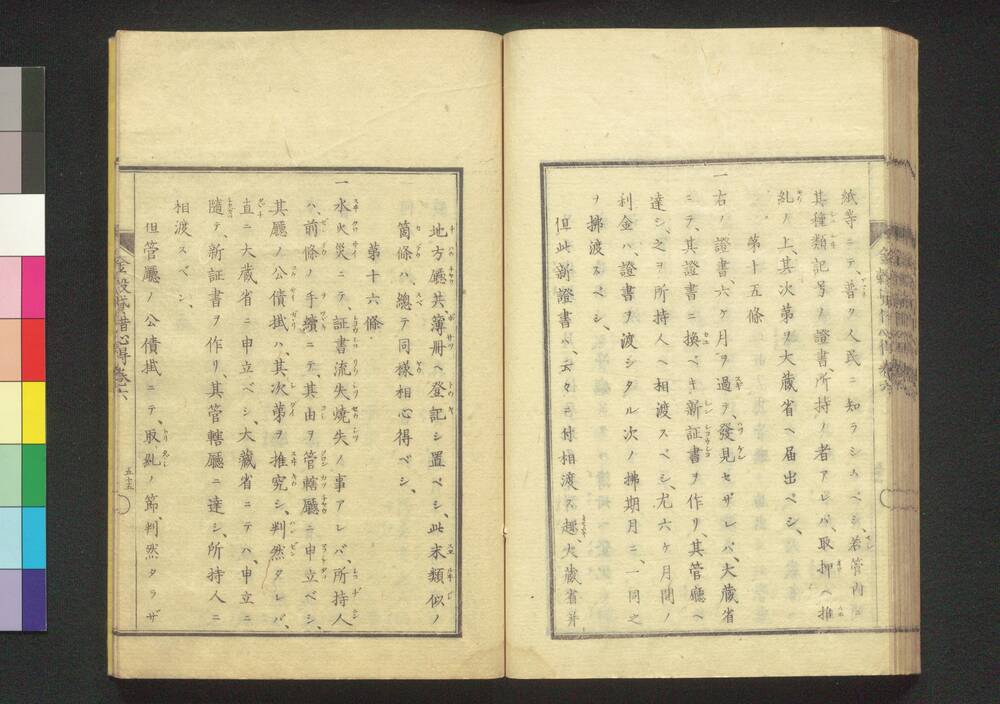 紙等ニテ、普ク人民ニ知ラシムベシ、若管内ニ
其種類記号ノ證書、所持ノ者アレバ、取押ヘ推
糺ノ上、其次第ヲ大蔵省ヘ届出ベシ、
第十五條
一右ノ證書、六ヶ月ヲ過ヲ、發見セザレバ、大蔵省
ニテ、其證書ニ換ベキ新証書ヲ作リ、其管廳ヘ
達シ、之ヲ所持人ヘ相渡スベシ、尤六ヶ月間ノ
利金ハ、證書ヲ渡シタル次ノ拂期月ニ、一同之
ヲ拂渡スベシ、
但此新證書ハ、云々ニ付相渡ス趣、大蔵省并
地方廳共、簿册ヘ登記シ置ベシ、此末類似ノ
箇條ハ、總テ同様相心得ベシ、
第十六條
一水火災ニテ証書流失焼失ノ事アレバ所持人
ハ、前條ノ手續ニテ、其由ヲ管轄廳ニ申立ベシ、
其廳ノ公債掛ハ、其次第ヲ推究シ、判然タレバ、
直ニ大蔵省ニ申立ベシ、大蔵省ニテハ、申立ニ
隨テ、新証書ヲ作リ、其管轄廳ニ達シ、所持人ニ
相渡スベシ、
但管廳ノ公債掛ニテ、取糺ノ節判然タラザ
金穀貸借心得 巻六
五十三